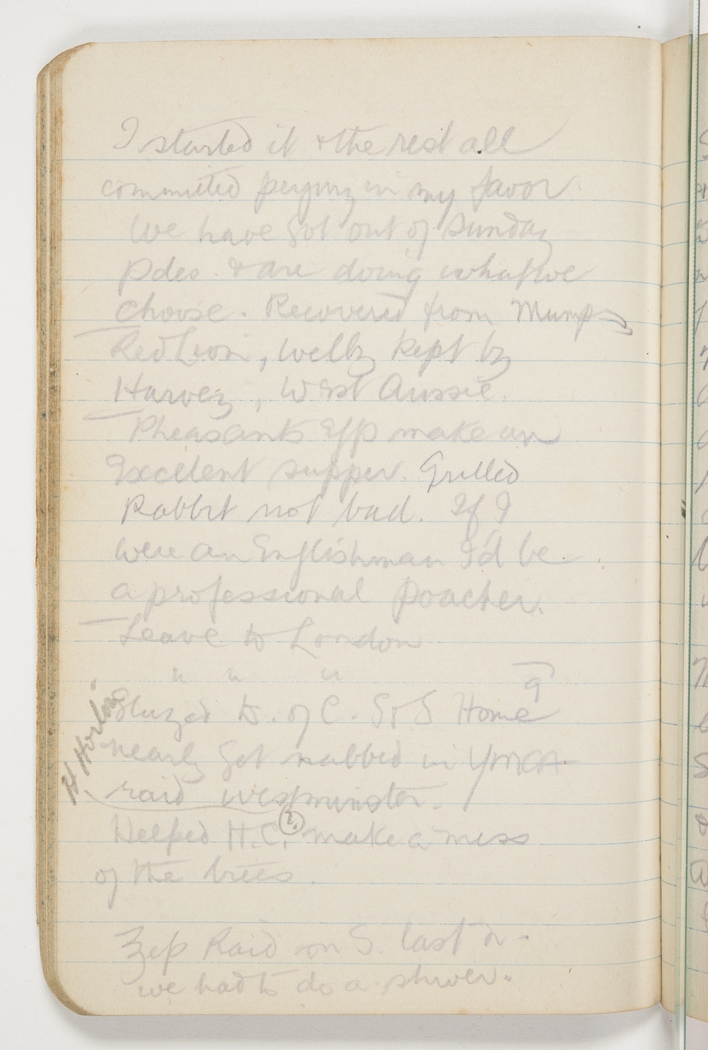 I started it & the rest all
committed perjury in my favor.
We have got out of Sunday
Pdes. & are doing what we
choose. Recovered from Mumps
Red Lion, well kept by
Harvey, West Aussie.
Pheasants Eggs make an
Excellent supper. Grilled
Rabbit not bad. If I
were an Englishman I'd be
a professional Poacher.
Leave to London
" " "
D. of C. S & S Home
nearly got nabbed in YMCA
raid Westminster.
Helped H.C. (?) make a mess
of the
Zep Raid on S. last n.
we had to do a